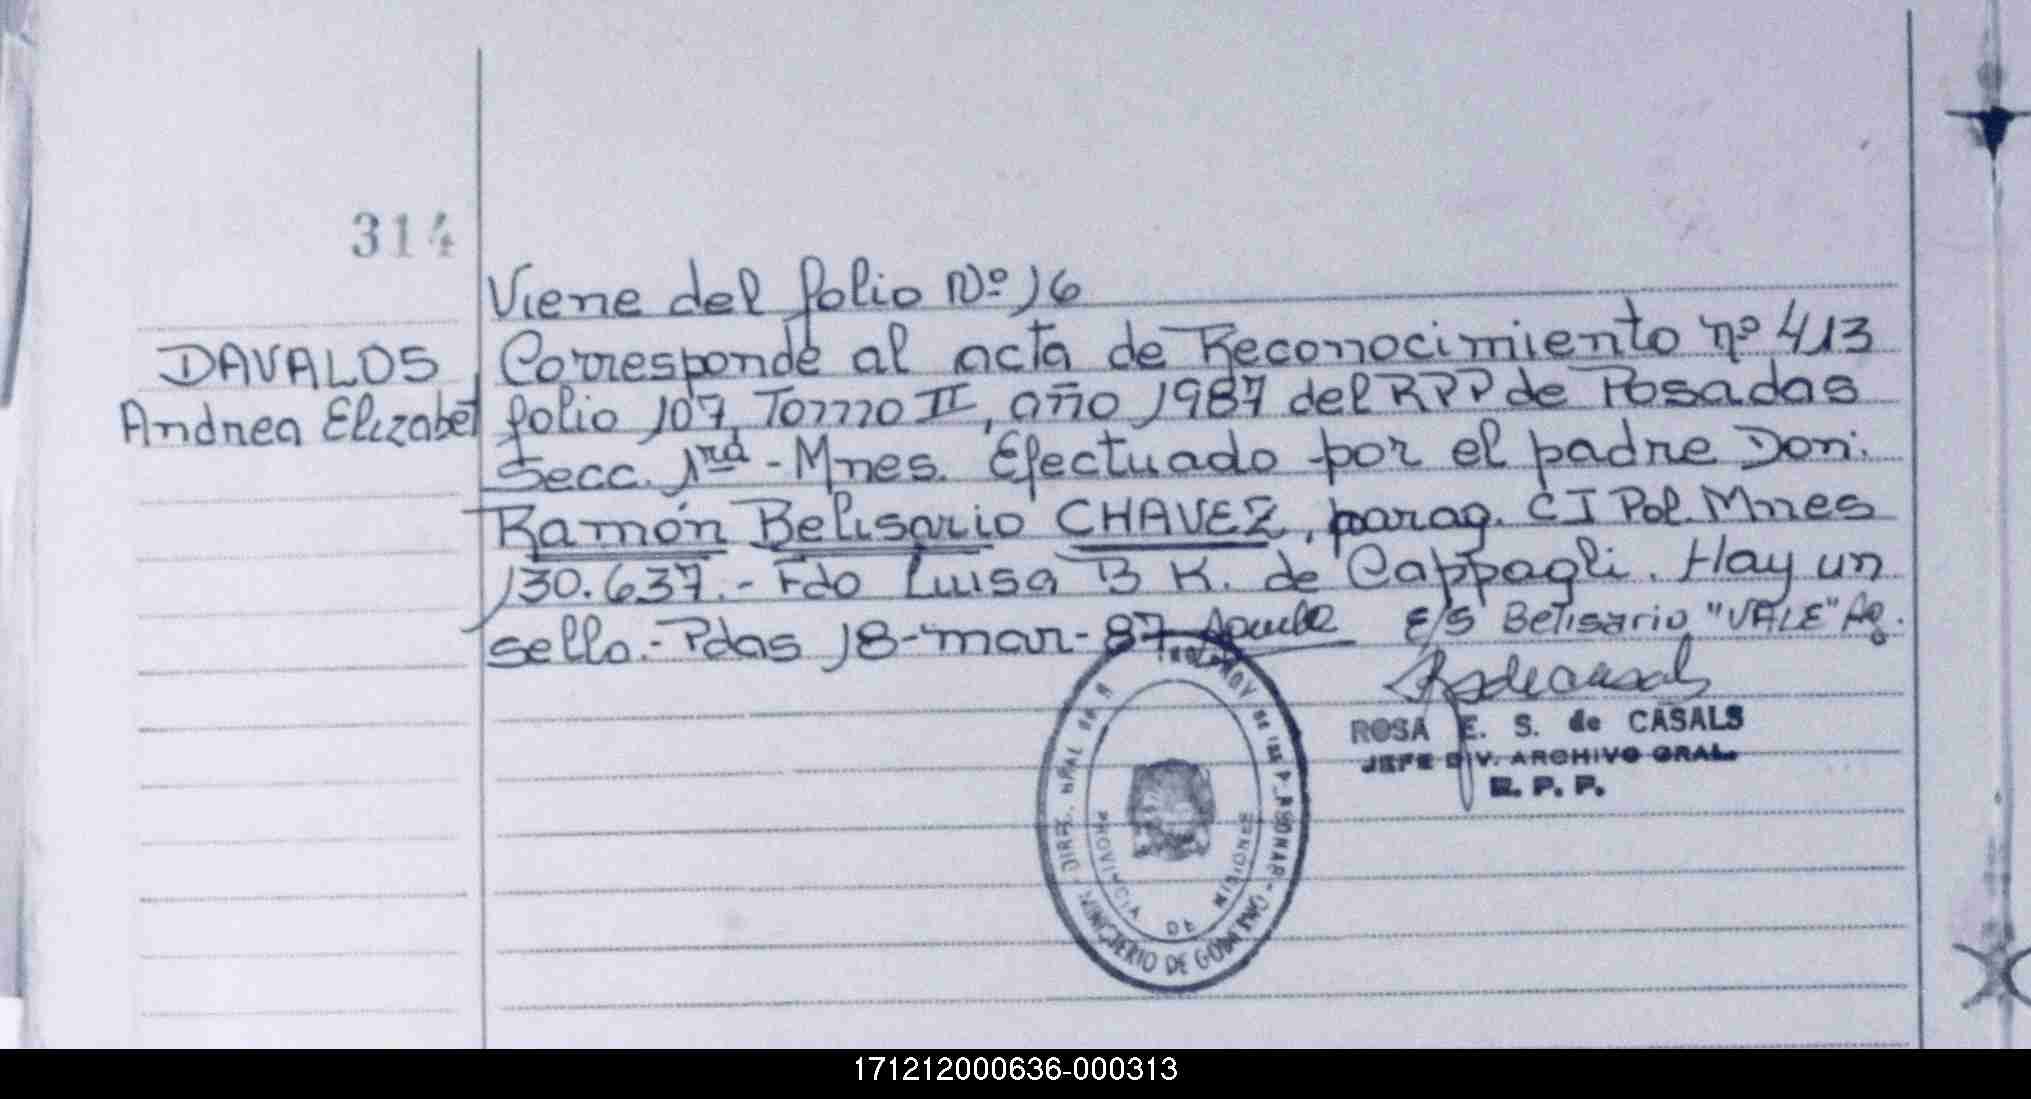 314
Viene del folio Nº 16
DAVALOS
Andrea Elizabet
Corresponde al acta de Reconocimiento nº 413
folio 107, Tomo II, año 1987 del RPP de Posadas
Secc. 1rd - Mnes. Efectuado por el padre Don:
Ramón Belisario CHAVEZ, parag. CI Pol. Mnes
130.637.- Fdo Luisa B K. de Cappagli. Hay un
sello.- Pdas 18-mar-87 E/S Belisario "VALE"
ROSA E. S. de CASALS
JEFE DIV. ARCHIVO GRAL.
R. P. P.
MINISTERIO DE GOBIERNO
PROVINCIA DE MISIONES
171212000636-000313